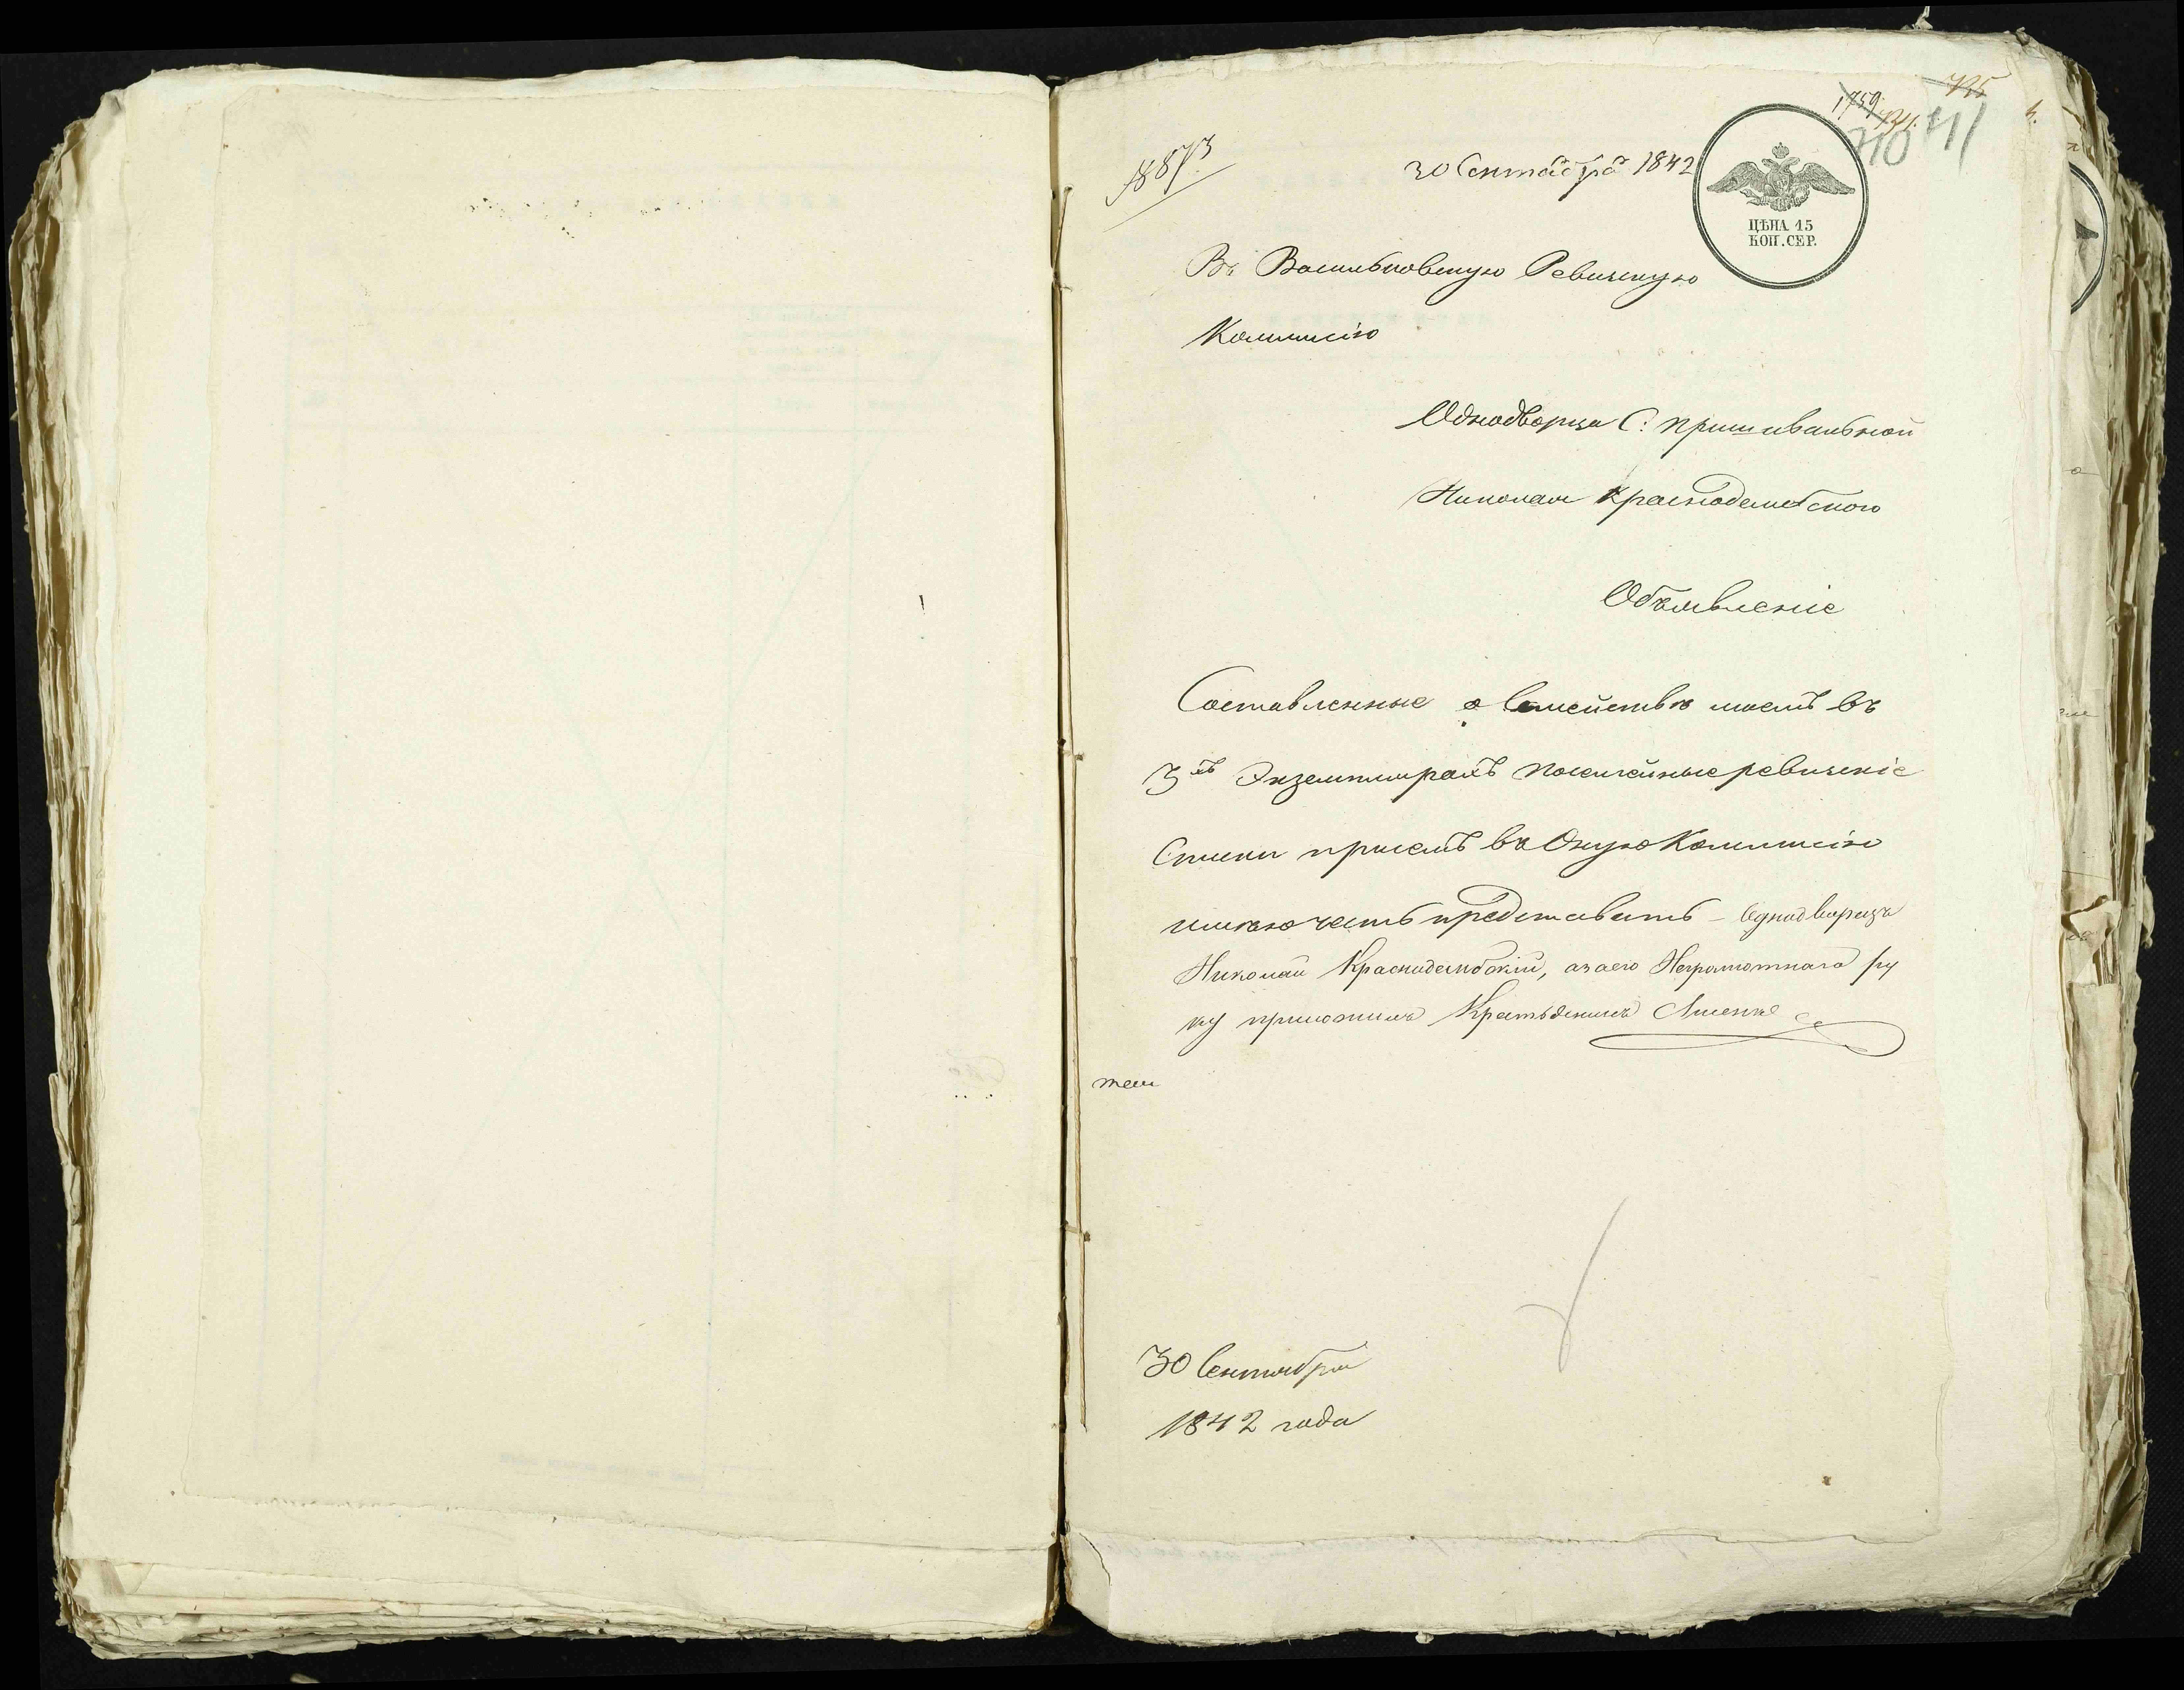 30 Сентября 1842
ЦѢНА 15
КОП. СЕР.
Въ Васильковскую Ревизскую
Коммисію
Однодворца С: Пришивальной
Николая Краснодембского
Объявленіе
Составленные о Семействѣ моемъ въ
3хъ Экземплярахъ посемейные ревизскіе
Списки присемъ въ Оную Коммисію
имѣю честь представить - Однодворецъ
Николай Краснодембскій, азаего Неграмотнаго ру
ку приложилъ
30 Сентября
1842 года